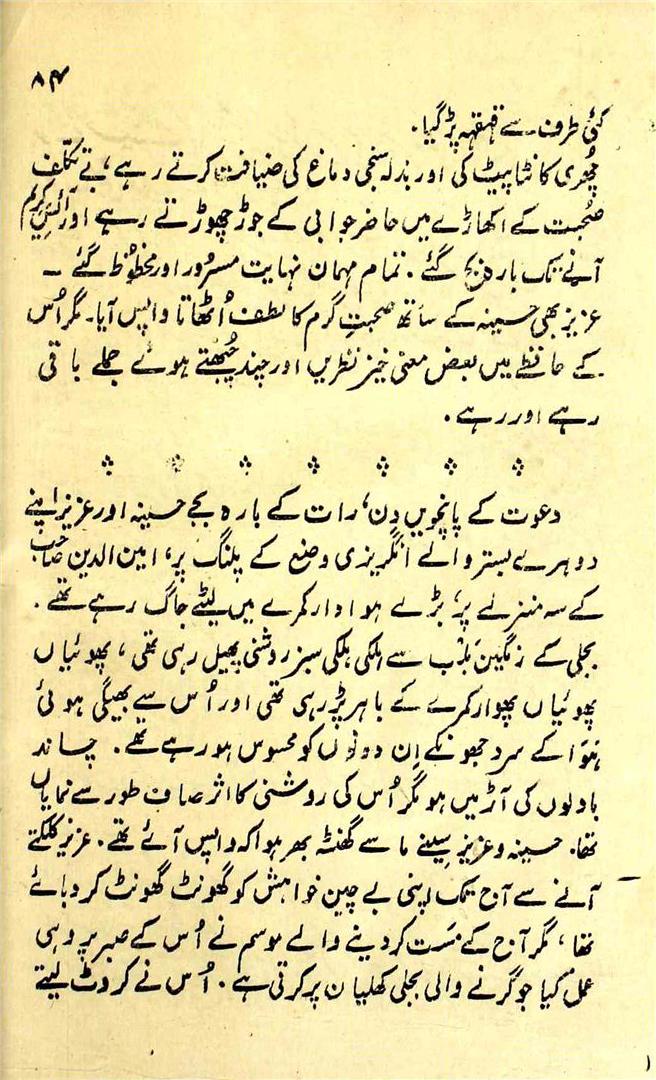 ۸۴
کئی طرف سے قہقہہ پڑ گیا۔
چُھری کانٹا پیٹ کی اور بذلہ سنجی دماغ کی ضیافت کرتے رہے، بے تکلّف
صُحبت کے اکھاڑے میں حاضر جوابی کے جوڑ چھوڑتے رہے اور آئس کریم
آنے تک بارہ بج گئے۔ تمام مہمان نہایت مسرُور اور محظوظ گئے ۔
عزیز بھی حسینہ کے ساتھ صحبتِ گرم کا لطف اُٹھاتا واپس آیا۔ مگر اُس
کے حافظے میں بعض معنی خیز نظریں اور چند چُبھتے ہوئے جملے باقی
رہے اور رہے۔
دعوت کے پانچویں دِن، رات کے بارہ بجے حسینہ اور عزیز اپنے
دوہرے بستر والے انگریزی وضع کے پلنگ پر، امین الدین صاحب
کے سہ منزلے پر، بڑے ہوادار کمرے میں لیٹے جاگ رہے تھے۔
بجلی کے رنگین بلب سے ہلکی ہلکی سبز روشنی پھیل رہی تھی، پھوئیاں
پھوئیاں پھوار کمرے کے باہر پڑ رہی تھی اور اُس سے بھیگی ہوئی
ہَوا کے سرد جھونکے اِن دونوں کو محسوس ہو رہے تھے۔ چاند
بادلوں کی آڑ میں ہو مگر اُس کی روشنی کا اثر صاف طور سے نمایاں
تھا۔ حسینہ و عزیز سینے ما سے گھنٹہ بھر ہوا کہ واپس آئے تھے۔ عزیز کلکتے
آنے سے آج تک اپنی بے چین خواہش کو گھونٹ گھونٹ کر دبائے
تھا، مگر آج کے مَست کر دینے والے موسم نے اُس کے صبر پر وہی
عمل کیا جو گرنے والی بجلی کھلیان پر کرتی ہے۔ اُس نے کروٹ لیتے